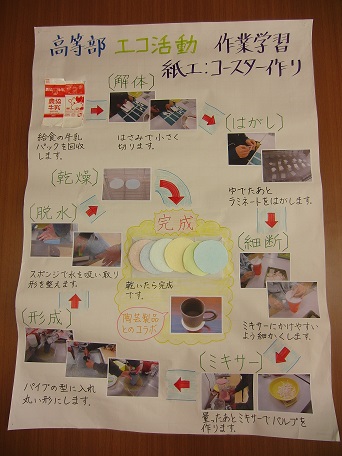 高等部 エコ活動 作業学習
紙工:コースター作り
〔解体〕
給食の牛乳
パックを回収
します。
はさみで小さく
切ります。
〔はがし〕
ゆでたあと
ラミネートをはがします。
〔乾燥〕
〔脱水〕
スポンジで水を吸い取り
形を整えます。
完成
乾いたら完成
です。
陶芸製品
とのコラボ
〔細断〕
ミキサーにかけやすい
よう細かくします。
〔形成〕
パイプの型に入れ
丸い形にします。
〔ミキサー〕
量ったあとミキサーでパルプを
作ります。